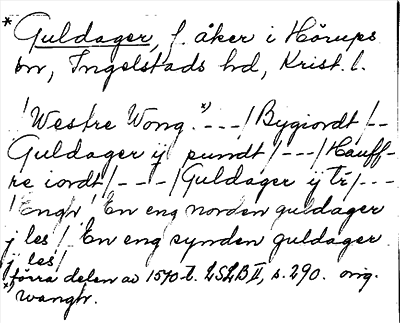 * Guldager, f. åker i Hörups
sn, Ingelstads hd, Krist. l.
/Westre Wong.*) - - - / Bygiordt / - -
Guldager ij pundt / - - - / Hauff-
re iordt / - - - / Guldager ij tr / - - -
/Engh/ En eng norden guldager
j les / En eng synden guldager
j les /
*) förra delen av 1570-t. LSLB II, s. 290. orig.
wangh.